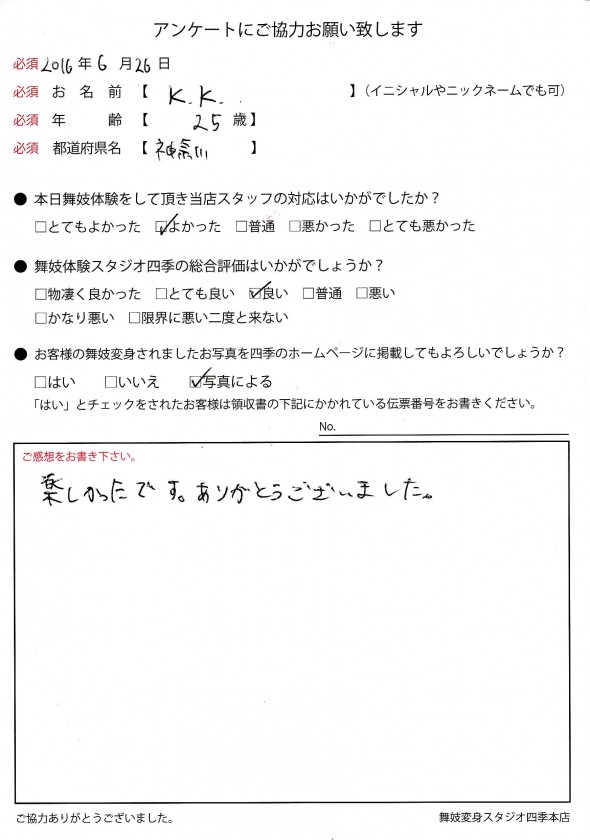 アンケートにご協力お願い致します
必須 2016 年 6 月 26 日
必須 お 名 前 【 K.K. 】（イニシャルやニックネームでも可）
必須 年 齢 【 25 歳】
必須 都道府県名 【 神奈川 】
● 本日舞妓体験をして頂き当店スタッフの対応はいかがでしたか？
□とてもよかった ☑よかった □普通 □悪かった □とても悪かった
● 舞妓体験スタジオ四季の総合評価はいかがでしょうか？
□物凄く良かった □とても良い ☑良い □普通 □悪い
□かなり悪い □限界に悪い二度と来ない
● お客様の舞妓変身されましたお写真を四季のホームページに掲載してもよろしいでしょうか？
□はい □いいえ ☑写真による
「はい」とチェックをされたお客様は領収書の下記にかかれている伝票番号をお書きください。
No.
ご感想をお書き下さい。
楽しかったです。ありがとうございました。
ご協力ありがとうございました。 舞妓変身スタジオ四季本店